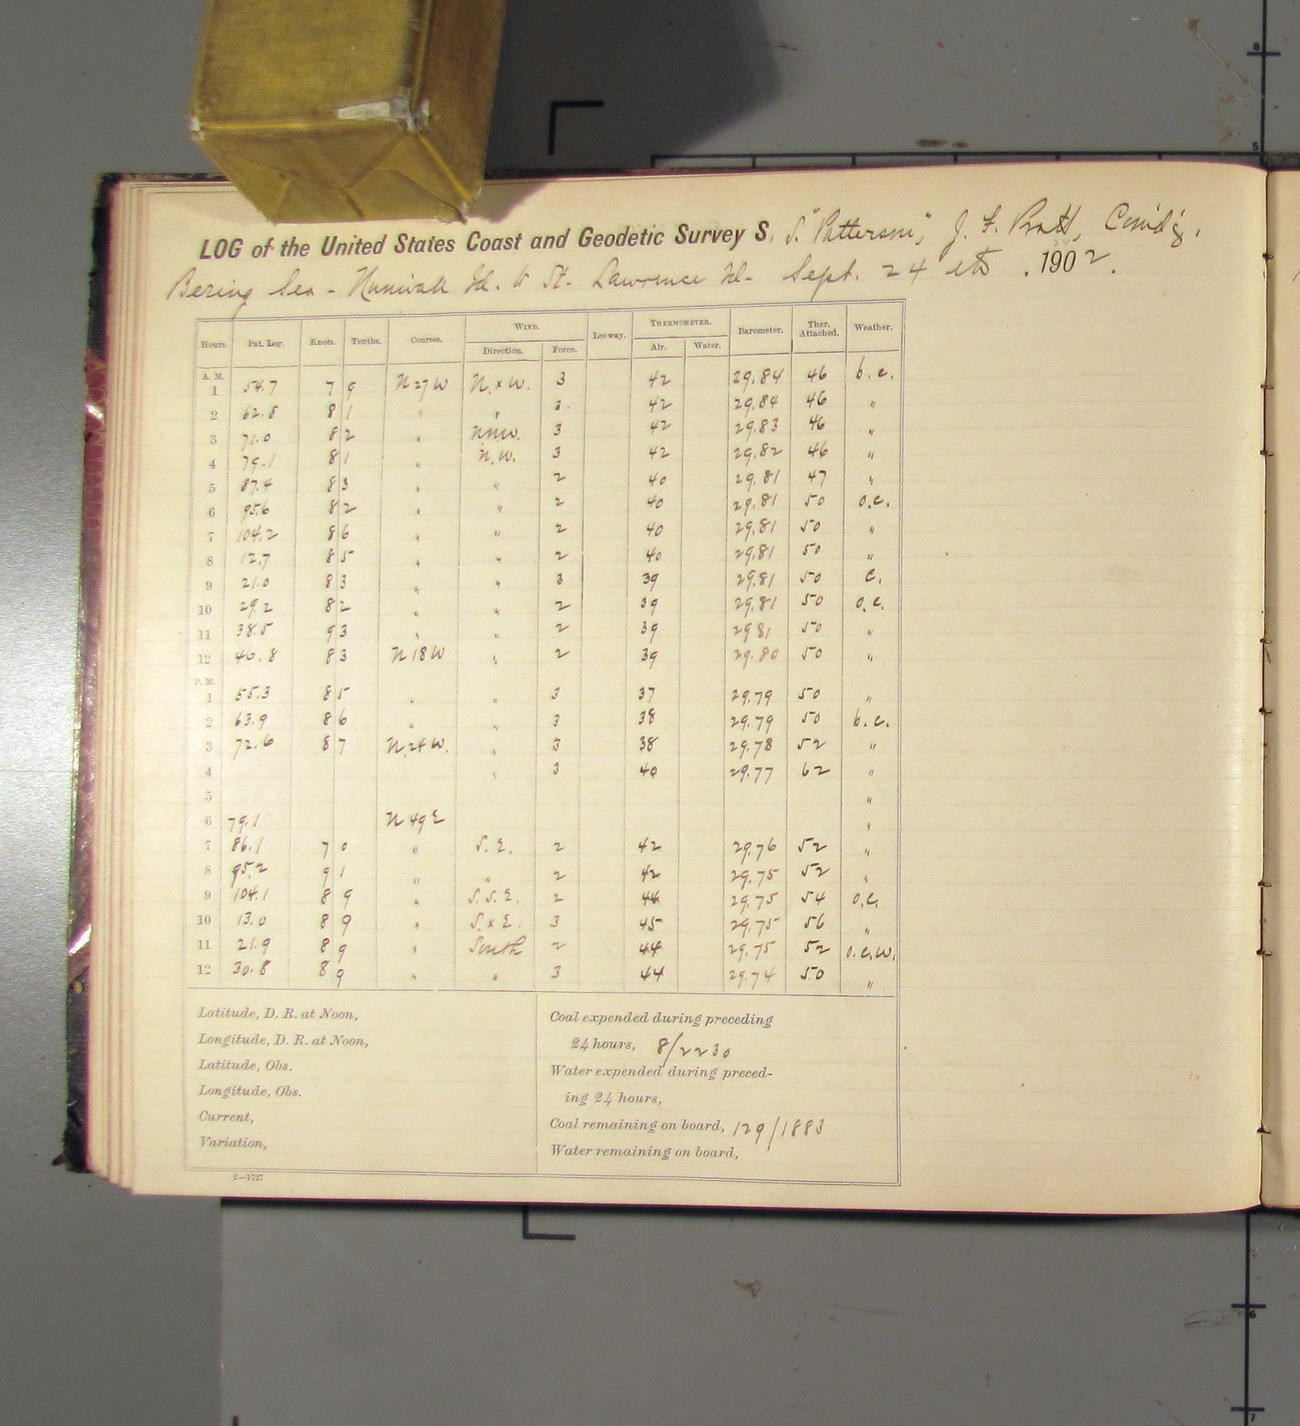 LOG of the United States Coast and Geodetic Survey S. S. "Patterson", J. F. Pratt, Comd'g.
Bering Sea - Nunivak Id. to St. Lawrence Id. Sept. 24 th .1902.
Hours. Pat. Log. Knots. Tenths. Courses. WIND. Direction. Force. Leeway. THERMOMETER. Air. Water. Barometer. Ther. Attached. Weather.
A. M.
1 54.7 7 9 N 27 W N. x W. 3 42 29.84 46 b.c.
2 62.8 8 1 " " 3 42 29.84 46 "
3 71.0 8 2 " NNW. 3 42 29.83 46 "
4 79.1 8 1 " N.W. 3 42 29.82 46 "
5 87.4 8 3 " " 2 40 29.81 47 "
6 95.6 8 2 " " 2 40 29.81 50 o.c.
7 104.2 8 6 " " 2 40 29.81 50 "
8 12.7 8 5 " " 2 40 29.81 50 "
9 21.0 8 3 " " 3 39 29.81 50 c.
10 29.2 8 2 " " 2 39 29.81 50 o.c.
11 38.5 9 3 " " 2 39 29 81 50 "
12 46.8 8 3 N 18 W " 2 39 29.80 50 "
P. M.
1 55.3 8 5 " " 3 37 29.79 50 "
2 63.9 8 6 " " 3 38 29.79 50 b.c.
3 72.6 8 7 N 24 W. " 3 38 29.78 52 "
4 " 3 40 29.77 62 "
5 "
6 79.1 N 49 E "
7 86.1 7 0 " S. E. 2 42 29.76 52 "
8 95.2 9 1 " " 2 42 29.75 52 "
9 104.1 8 9 " S. S. E. 2 44 29.75 54 o.c.
10 13.0 8 9 " S. x E. 3 45 29.75 56 "
11 21.9 8 9 " South 2 44 29.75 52 o.c.w.
12 30.8 8 9 " " 3 44 29.74 50 "
Latitude, D. R. at Noon,
Longitude, D. R. at Noon,
Latitude, Obs.
Longitude, Obs.
Current,
Variation,
Coal expended during preceding
24 hours, 8/2230
Water expended during preced-
ing 24 hours,
Coal remaining on board, 129/1883
Water remaining on board,
2—1727
6
5
6
7